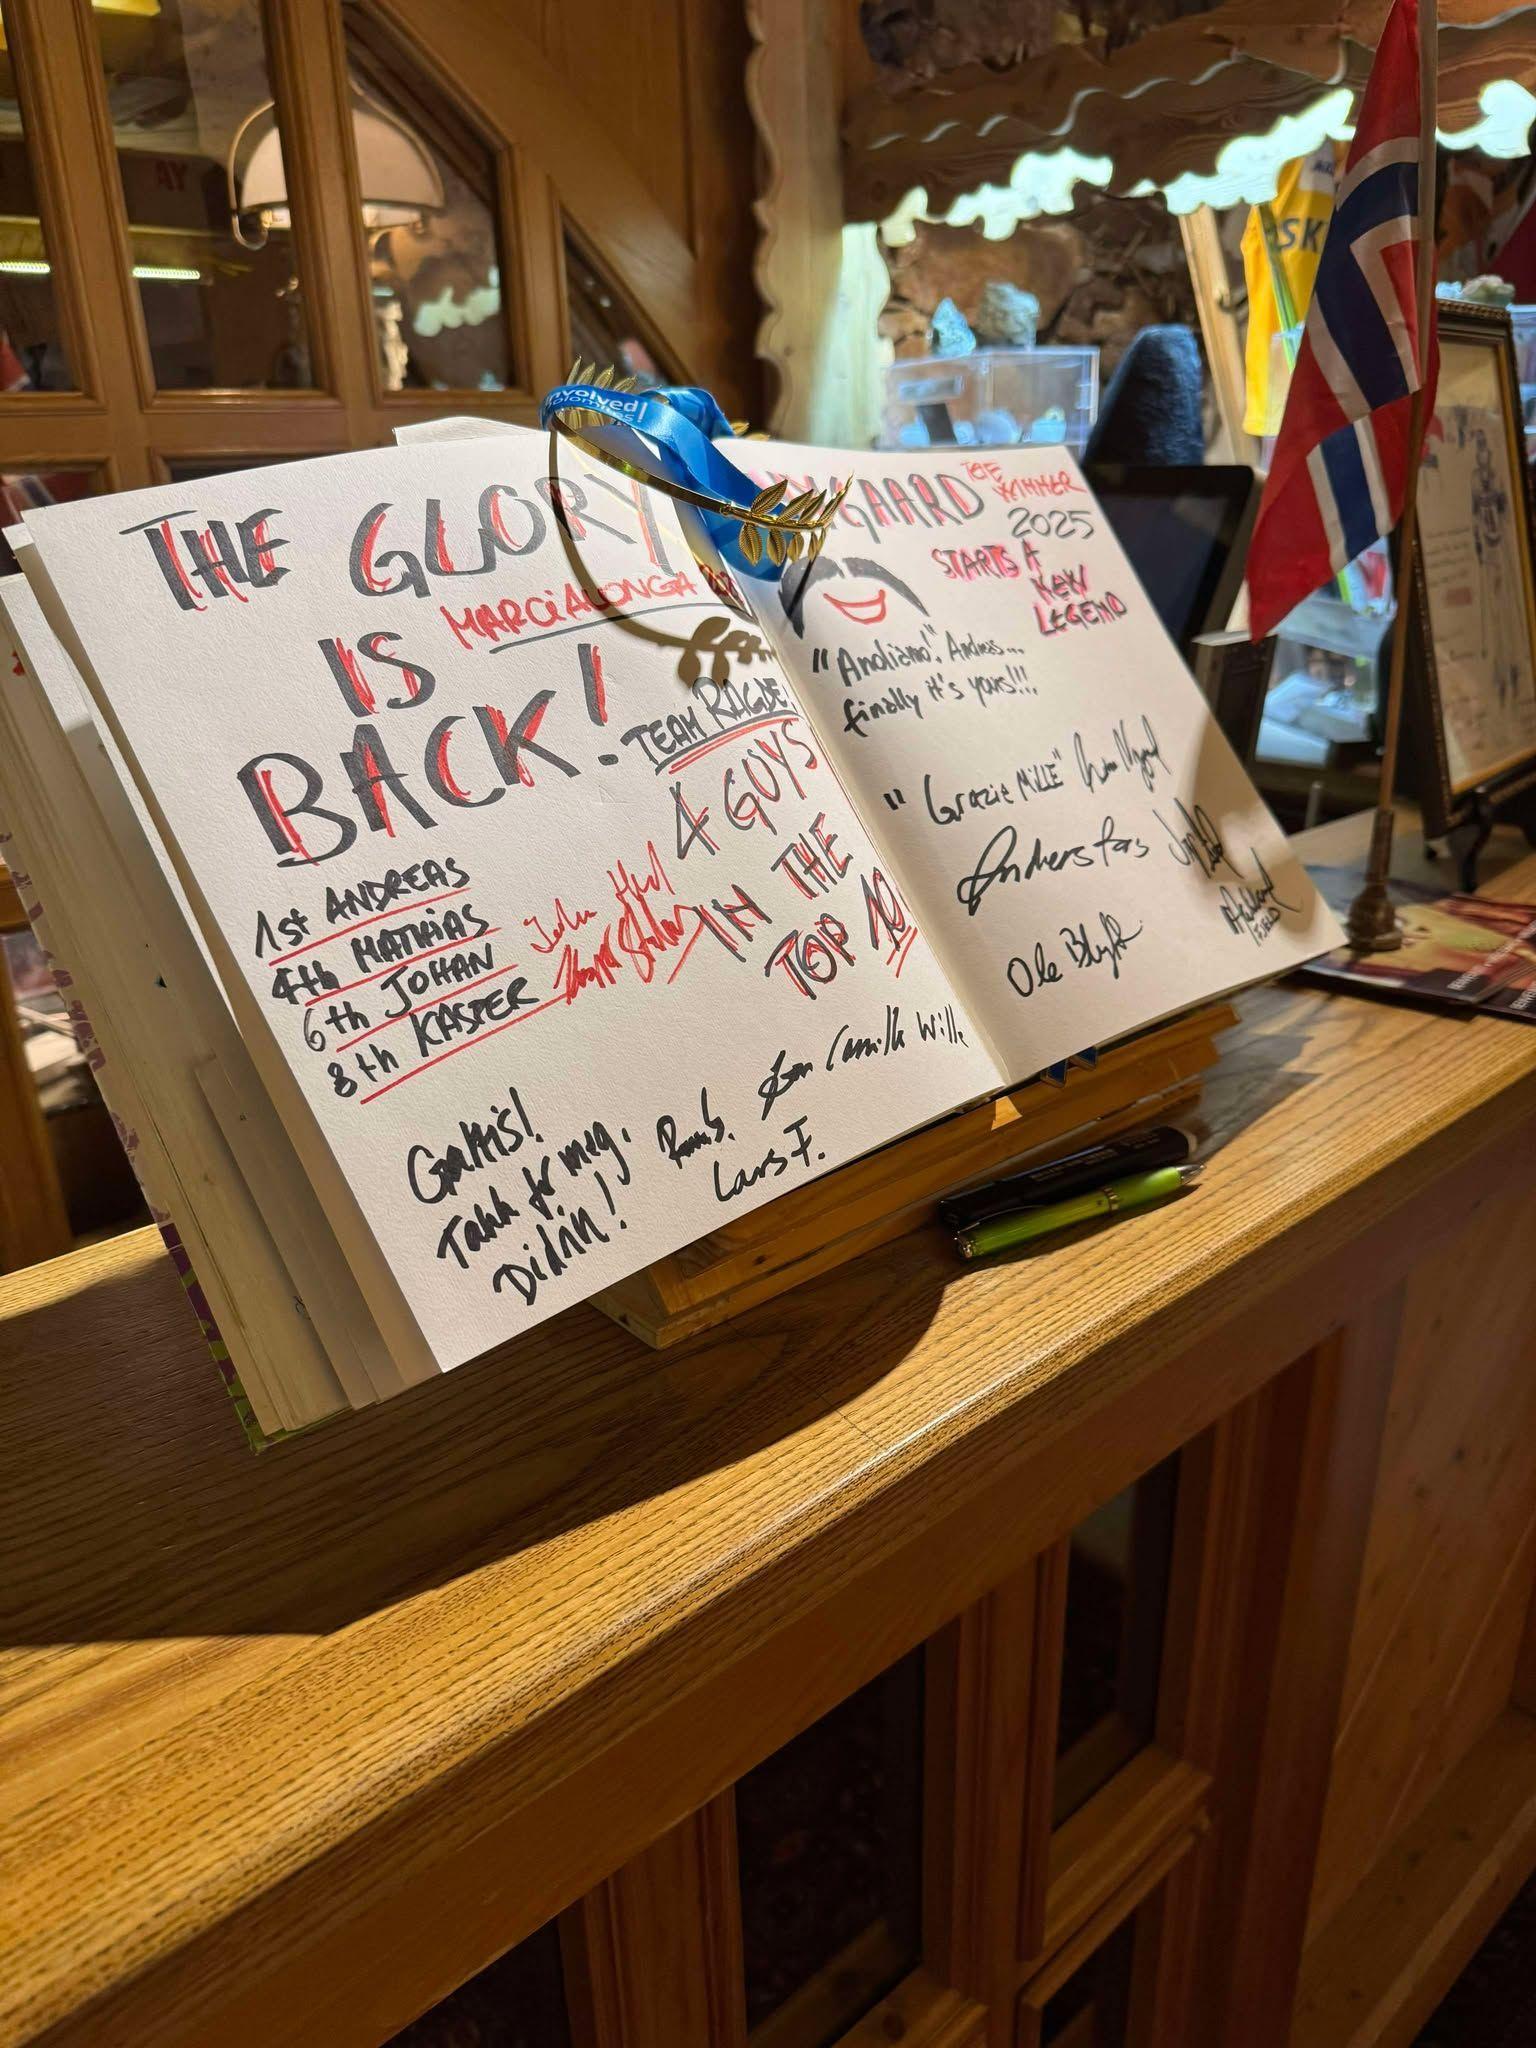 THE GLORY
MARCIALONGA
IS
BACK!
TEAM RAGDE!
4 GUYS
IN THE
TOP 10
1st ANDREAS
4th MATHIAS
6th JOHAN
8th KASPER
Johan
Kasper
Gratis!
Takk for meg.
Didrik!
Camilla Wille
Lars F.
NYGAARD
THE
WINNER
2025
STARTS A
NEW
LEGEND
"Andiamo!" Andreas...
finally it's yours!!!
"Grazie MILLE"
Anders
Ole
involved!
dolomites!
SK